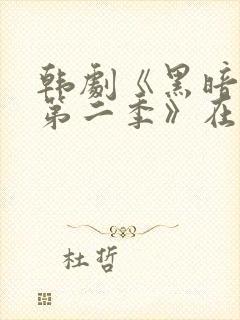 韩劇《黑暗
第二季》在
杜哲